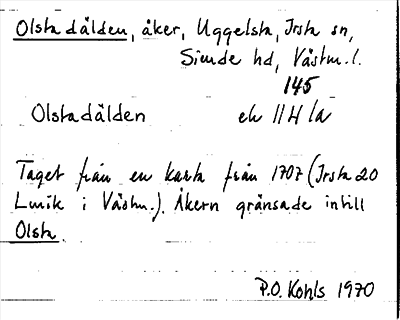 Olstadälden, åker, Uggelsta, Irsta sn,
Siende hd, Västm. l.
145
Olstadälden ek 11 H 1a
Taget från en karta från 1707 (Irsta 20
Lmik i Västm.). Åkern gränsade intill
Olsta.
P.O. Kohls 1970